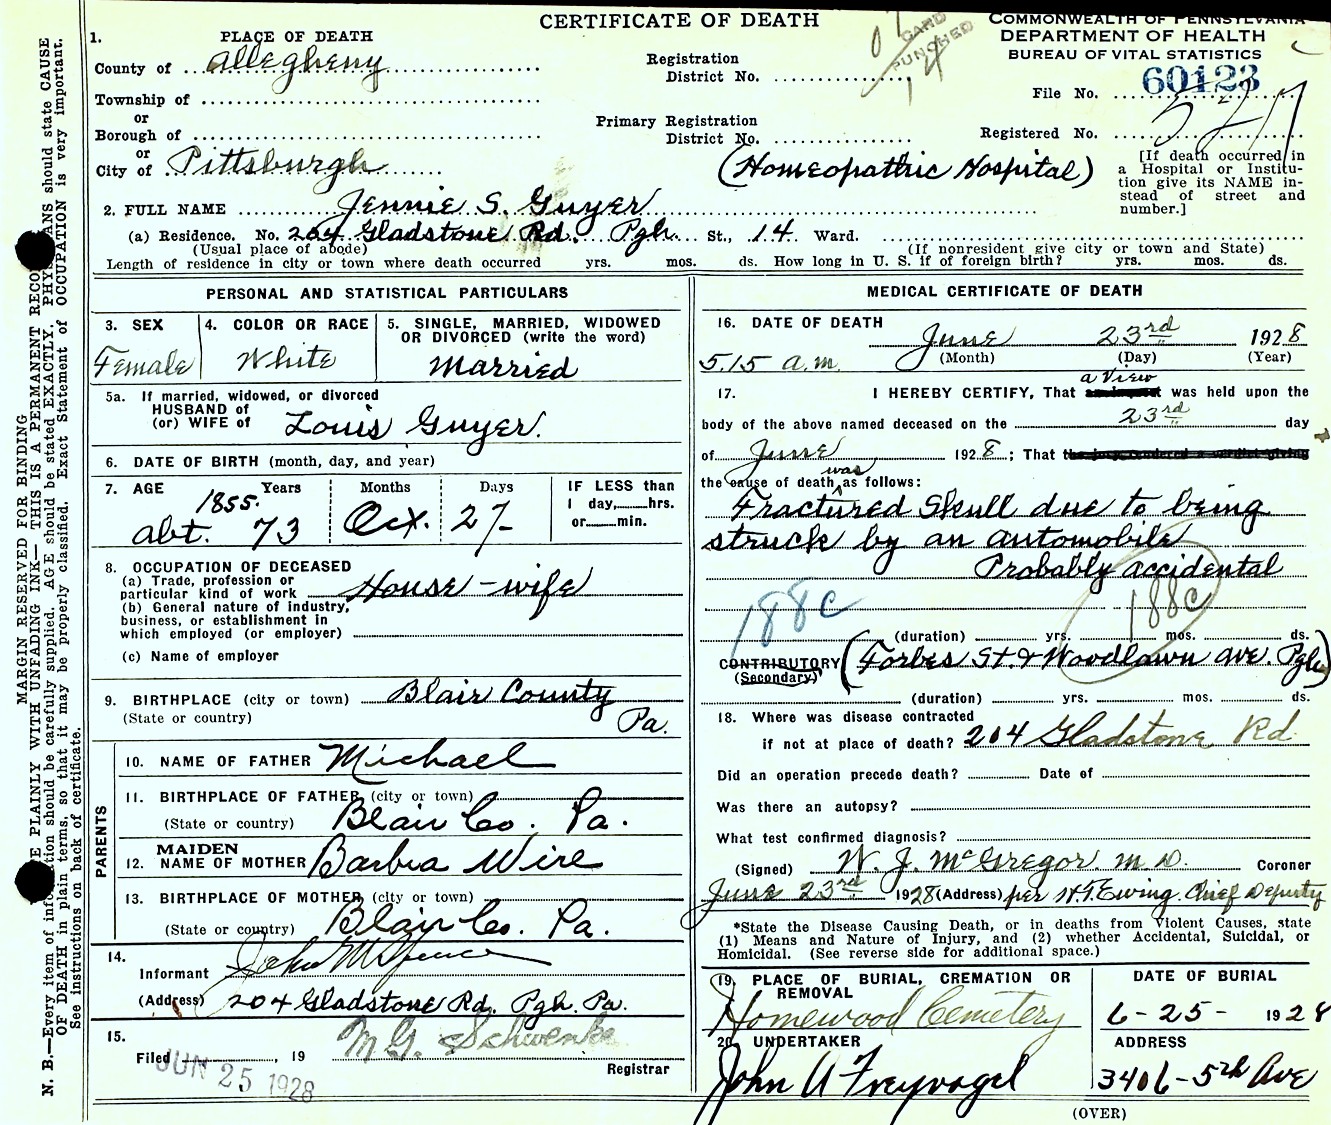 CERTIFICATE OF DEATH
COMMONWEALTH OF PENNSYLVANIA
DEPARTMENT OF HEALTH
BUREAU OF VITAL STATISTICS
CARD PUNCHED
1. PLACE OF DEATH
County of Allegheny
Township of
or
Borough of
or
City of Pittsburgh
Registration
District No.
Primary Registration
District No.
File No. 60123
Registered No.
(Homeopathic Hospital)
[If death occurred in
a Hospital or Institu-
tion give its NAME in-
stead of street and
number.]
2. FULL NAME Jennie S. Guyer
(a) Residence. No. 204 Gladstone Rd. Pgh. St., 14 Ward.
(Usual place of abode) (If nonresident give city or town and State)
Length of residence in city or town where death occurred yrs. mos. ds. How long in U. S. if of foreign birth? yrs. mos. ds.
PERSONAL AND STATISTICAL PARTICULARS
3. SEX
Female
4. COLOR OR RACE
White
5. SINGLE, MARRIED, WIDOWED
OR DIVORCED (write the word)
Married
5a. If married, widowed, or divorced
HUSBAND of
(or) WIFE of Louis Guyer.
6. DATE OF BIRTH (month, day, and year)
7. AGE Years Months Days
1855.
abt. 73 Oct. 27
IF LESS than
1 day,____hrs.
or____min.
8. OCCUPATION OF DECEASED
(a) Trade, profession or
particular kind of work House-wife
(b) General nature of industry,
business, or establishment in
which employed (or employer)
(c) Name of employer
9. BIRTHPLACE (city or town) Blair County
(State or country) Pa.
PARENTS
10. NAME OF FATHER Michael
11. BIRTHPLACE OF FATHER (city or town)
(State or country) Blair Co. Pa.
12. MAIDEN
NAME OF MOTHER Barbra Wire
13. BIRTHPLACE OF MOTHER (city or town)
(State or country) Blair Co. Pa.
14.
Informant John M
(Address) 204 Gladstone Rd. Pgh. Pa.
15.
Filed JUN 25 1928, 19 M. G. Schwenke
Registrar
MEDICAL CERTIFICATE OF DEATH
16. DATE OF DEATH
June 23rd 1928
(Month) (Day) (Year)
5.15 a.m.
17. I HEREBY CERTIFY, That a View was held upon the
body of the above named deceased on the 23rd day
of June 1928; That
the cause of death was as follows:
Fractured Skull due to being
struck by an automobile
Probably accidental
188c 188c
(duration) yrs. mos. ds.
CONTRIBUTORY (Forbes St. & Woodlawn ave. Pgh)
(Secondary)
(duration) yrs. mos. ds.
18. Where was disease contracted
if not at place of death? 204 Gladstone Rd
Did an operation precede death? Date of
Was there an autopsy?
What test confirmed diagnosis?
(Signed) W. J. McGregor M.D. Coroner
June 23rd 1928 (Address) per H.T. Ewing. Chief Deputy
*State the Disease Causing Death, or in deaths from Violent Causes, state
(1) Means and Nature of Injury, and (2) whether Accidental, Suicidal, or
Homicidal. (See reverse side for additional space.)
19. PLACE OF BURIAL, CREMATION OR
REMOVAL
Homewood Cemetery
DATE OF BURIAL
6-25- 1928
20. UNDERTAKER
John A Freyvogel
ADDRESS
3406-5th Ave
(OVER)
MARGIN RESERVED FOR BINDING
E PLAINLY WITH UNFADING INK— THIS IS A PERMANENT RECO
N. B.—Every item of info ation should be carefully supplied. AGE should be stated EXACTLY. PHY ANS should state CAUSE
OF DEATH in plain terms, so that it may be properly classified. Exact Statement of OCCUPATION is very important.
See instructions on back of certificate.